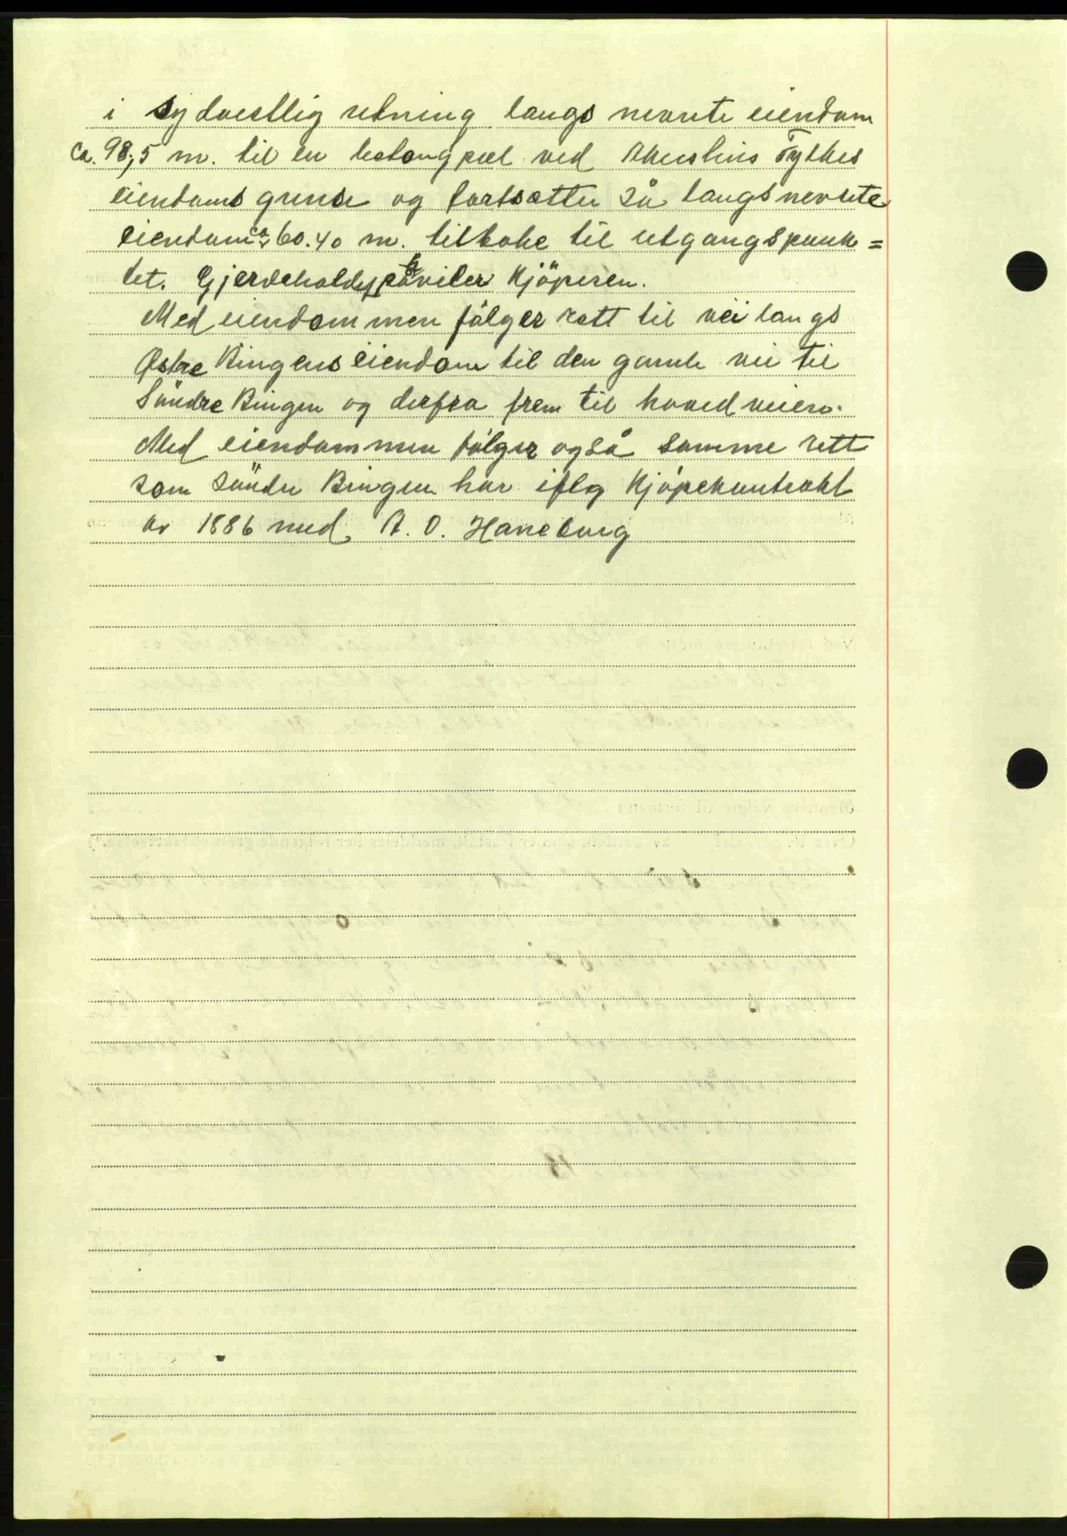 i sydvestlig retning langs nevnte eiendom
ca. 98,5 m. til en betongpæl ved Akershus Fylkes
eiendoms grense og fortsætter så langs nevnte
eiendom ca 60.40 m. tilbake til utgangspunk=
tet. Gjerdeholdet påviler Kjöperen.
Med eiendommen følger rett til vei langs
Østre Bingens eiendom til den gamle vei til
Söndre Bingen og derfra frem til hovedveien.
Med eiendommen følger også samme rett
som Söndre Bingen har iflg Kjöpekontrakt
av 1886 med A. O. Haneborg